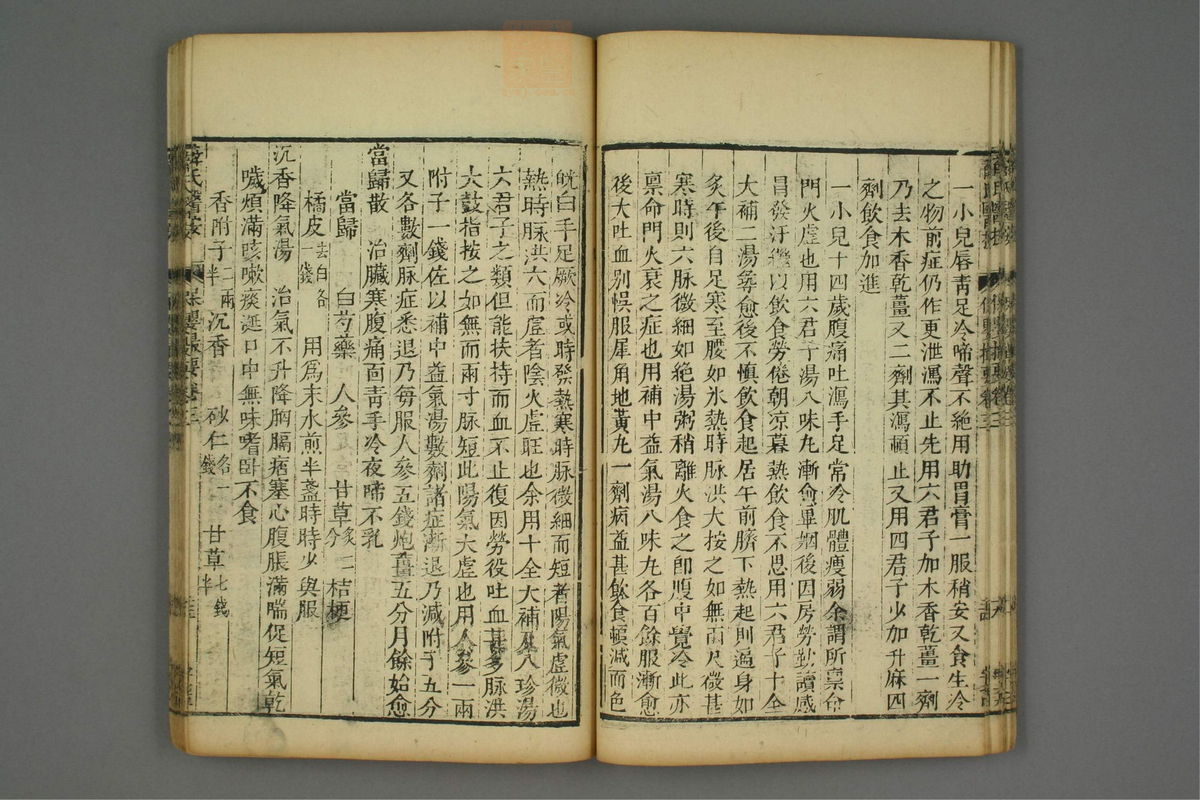 一小兒唇靑足冷啼聲不絶用助胃膏一服稍安又食生冷
之物前症仍作更泄瀉不止先用六君子加木香乾薑一劑
乃去木香乾薑又二劑其瀉頓止又用四君子少加升麻四
劑飲食加進
一小兒十四歲腹痛吐瀉手足常冷肌體瘦弱余謂所禀命
門火虛也用六君子湯八味丸漸愈畢姻後因房勞勤讀感
昌發汗繼以飲食勞倦朝凉暮熱飲食不思用六君子十全
大補二湯尋愈後不慎飲食起居午前臍下熱起則遍身如
炙午後自足寒至腰如氷熱時脉洪大按之如無兩尺微甚
寒時則六脉微細如絶湯粥稍離火食之卽腹中覺冷此亦
禀命門火衰之症也用補中益氣湯八味丸各百餘服漸愈
後大吐血别悞服犀角地黃丸一劑病益甚飲食頓减而色
㿠白手足厥冷或時發熱寒時脉微細而短者陽氣虛微也
熱時脉洪大而虛者陰火虛旺也余用十全大補及八珍湯
六君子之類但能扶持而血不止復因勞役吐血甚多脉洪
大鼓指按之如無而兩寸脉短此陽氣大虛也用人參一兩
附子一錢佐以補中益氣湯數劑諸症漸退乃减附子五分
又各數劑脉症悉退乃每服人參五錢炮薑五分月餘始愈
當歸散　治臟寒腹痛面靑手冷夜啼不乳
當歸　白芍藥　人參　甘草炙二分　桔梗
橘皮去白各一錢　用爲末水煎半盞時時少與服
沉香降氣湯　治氣不升降胸膈痞塞心腹脹滿喘促短氣乾
噦煩滿咳嗽痰涎口中無味嗜卧不食
香附子二兩半　沉香　砂仁各一錢　甘草七錢半
薛氏醫案　保嬰撮要卷三